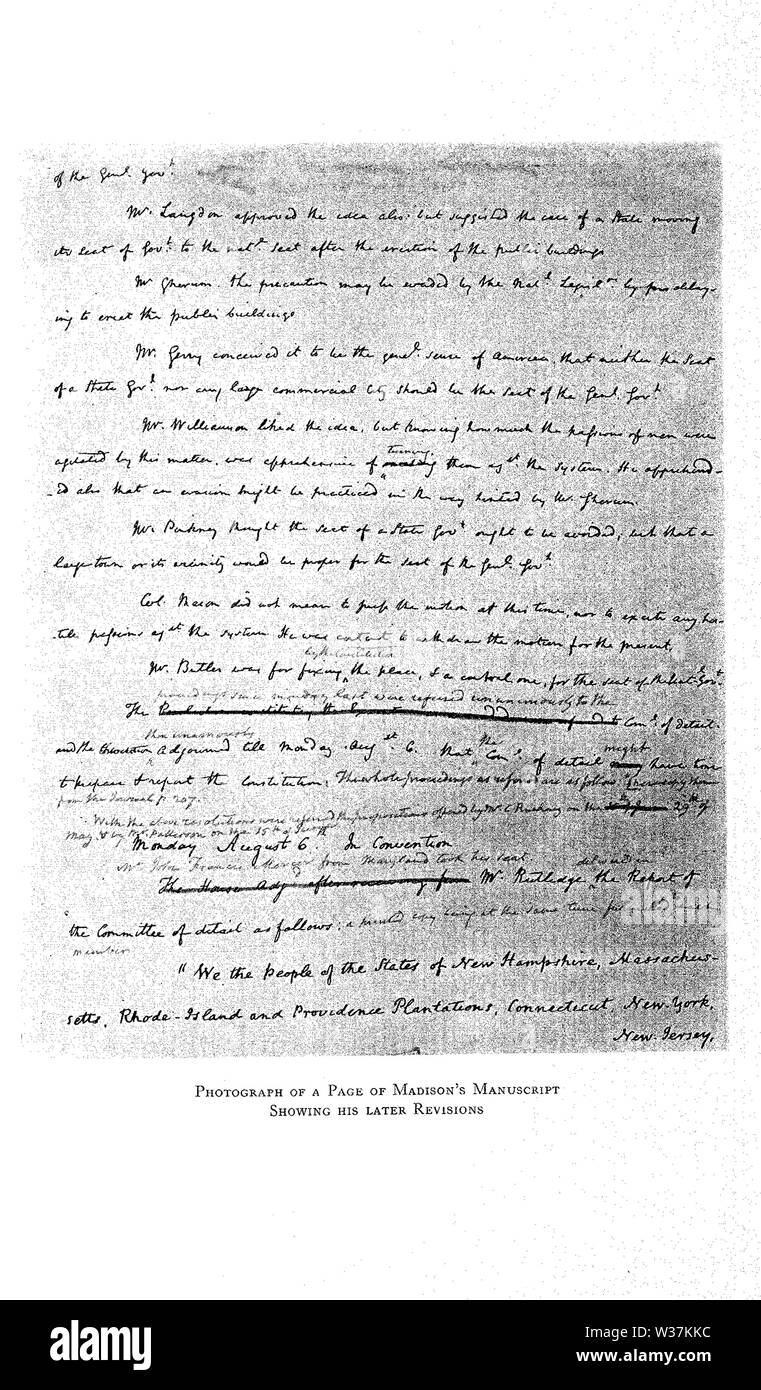 of the Genl. Govt.
Mr. Langdon approved the idea also: but suggested the case of a State moving
its seat of Govt. to the natl. seat after the erection of the public buildings
Mr Ghorum. the precaution may be evaded by the Natl. Legislre. by delay-
ing to erect the public buildings
Mr. Gerry conceived it to be the genel. sense of America, that neither the Seat
of a State Govt. nor any large commercial City should be the seat of the Genl. Govt.
Mr. Williamson liked the idea, but knowing how much the passions of men were
turning
agitated by this matter, was apprehensive of them agst. the system. He apprehend-
-ed also that an evasion might be practiced in the way hinted by Mr. Ghorum.
Mr. Pinkney thought the seat of a State Govt. ought to be avoided; but that a
large town or its vicinity would be proper for the seat of the Genl. Govt.
Col. Mason did not mean to press the motion at this time, nor to excite any hos-
-tile passions agst. the system. He was content to withdraw the motion for the present,
by the Constitution
Mr. Butler was for fixing the place, & a central one, for the seat of the Natl. Govt.
proceedings since monday last were referred unanimously to the
The to Comme. of detail
then unanimously
and the Convention Adjourned till Monday Augst. 6. that the Come. of detail might have time
to prepare & report the Constitution: The whole proceedings as referred are as follow: "
from the Journal p. 207.
With the above resolutions were referred the propositions offered by Mr. C Pinckney on the 29th. of
May, & by Mr. Patterson on the 15th. of June
Monday August 6. In Convention
Mr. John Francis Mercer from Maryland took his seat
delivered in
Mr Rutlidge the Report of
the Committee of detail as follows: a printed copy being at the same time
member
"We the People of the States of New Hampshire, Massachus-
setts, Rhode-Island and Providence Plantations, Connecticut, New-York,
New-Jersey,
Photograph of a Page of Madison's Manuscript
Showing his later Revisions
alamy
alamy
Image ID: W37KKC
www.alamy.com